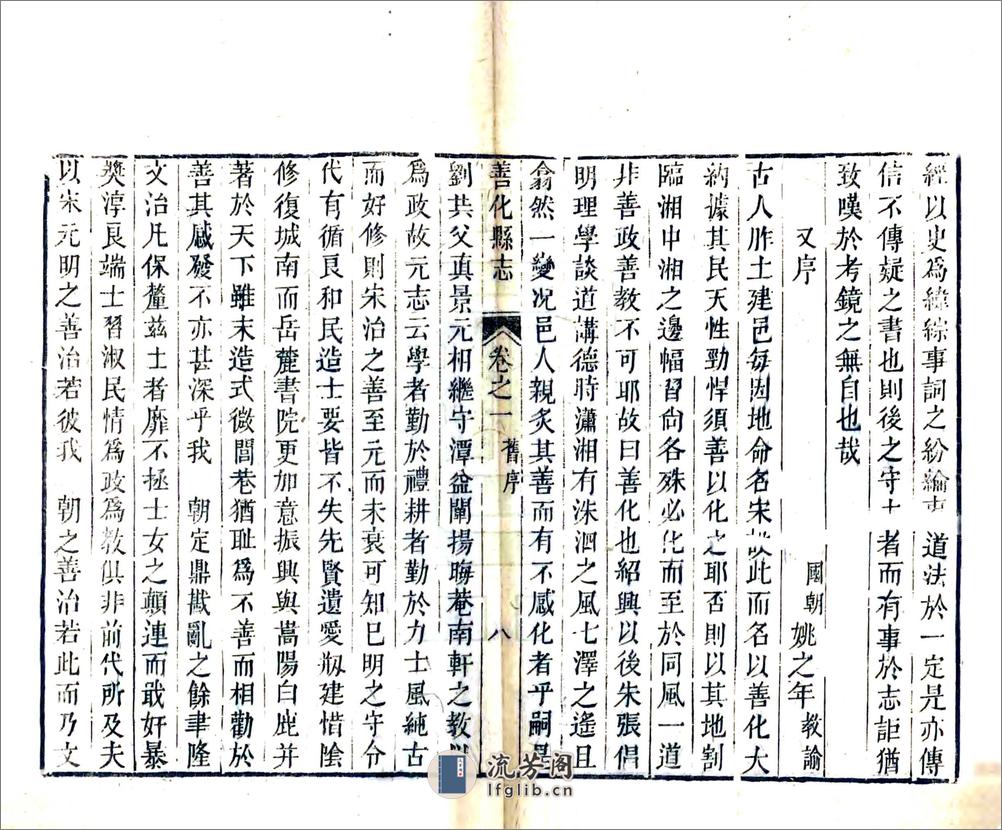 經以史爲緯綜事詞之紛綸 道法於一定是亦傳
信不傳疑之書也則後之守土者而有事於志詎猶
致嘆於考鏡之無自也哉
又序 國朝姚之年教諭
古人胙土建邑每因地命名宋 此而名以善化大
約據其民天性勁悍須善以化之耶否則以其地割
臨湘中湘之邊幅習尙各殊必化而至於同風一道
非善政善教不可耶故曰善化也紹興以後朱張倡
明理學談道講德時瀟湘有洙泗之風七澤之遙且
翕然一變况邑人親炙其善而有不感化者乎嗣是
善化縣志 卷之一 舊序 八
劉共父眞景元相繼守潭益闡揚晦菴南軒之教以
爲政故元志云學者勤於禮耕者勤於力士風純古
而好修則宋治之善至元而未衰可知已明之守分
代有循良和民造士要皆不失先賢遺愛剏建惜陰
修復城南而岳麓書院更加意振興與嵩陽白鹿并
著於天下雖末造式微閭巷猶耻爲不善而相勸於
善其感發不亦甚深乎我 朝定鼎戡亂之餘聿隆
文治凡保釐兹土者靡不拯士女之顛連而戢奸暴
奬淳良端士習淑民情爲政爲教俱非前代所及夫
以宋元明之善治若彼我 朝之善治若此而乃文
流芳阁
lfglib.cn